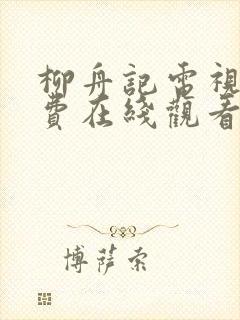 柳舟記電視
費在綫觀看
博薩索